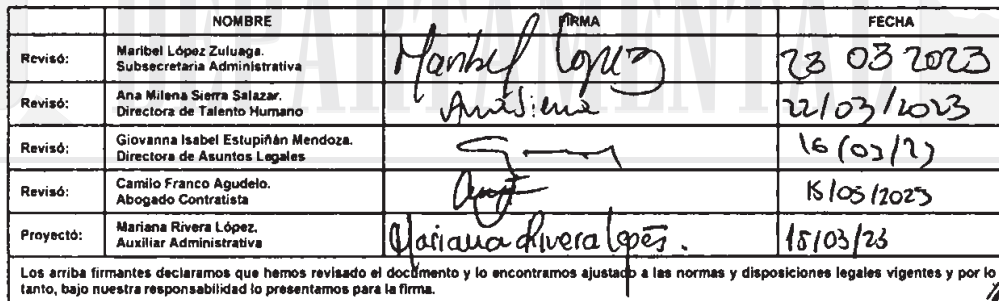 DEPARTAMENTAL
NOMBRE FIRMA FECHA
Revisó: Maribel López Zuluaga.
Subsecretaria Administrativa Maribel López 23 03 2023
Revisó: Ana Milena Sierra Salazar.
Directora de Talento Humano AnaSierra 22/03/2023
Revisó: Giovanna Isabel Estupiñán Mendoza.
Directora de Asuntos Legales 16/03/23
Revisó: Camilo Franco Agudelo.
Abogado Contratista /2023
Proyectó: Mariana Rivera López.
Auxiliar Administrativa Mariana Rivera López. /03/23
Los arriba firmantes declaramos que hemos revisado el documento y lo encontramos ajustado a las normas y disposiciones legales vigentes y por lo
tanto, bajo nuestra responsabilidad lo presentamos para la firma.